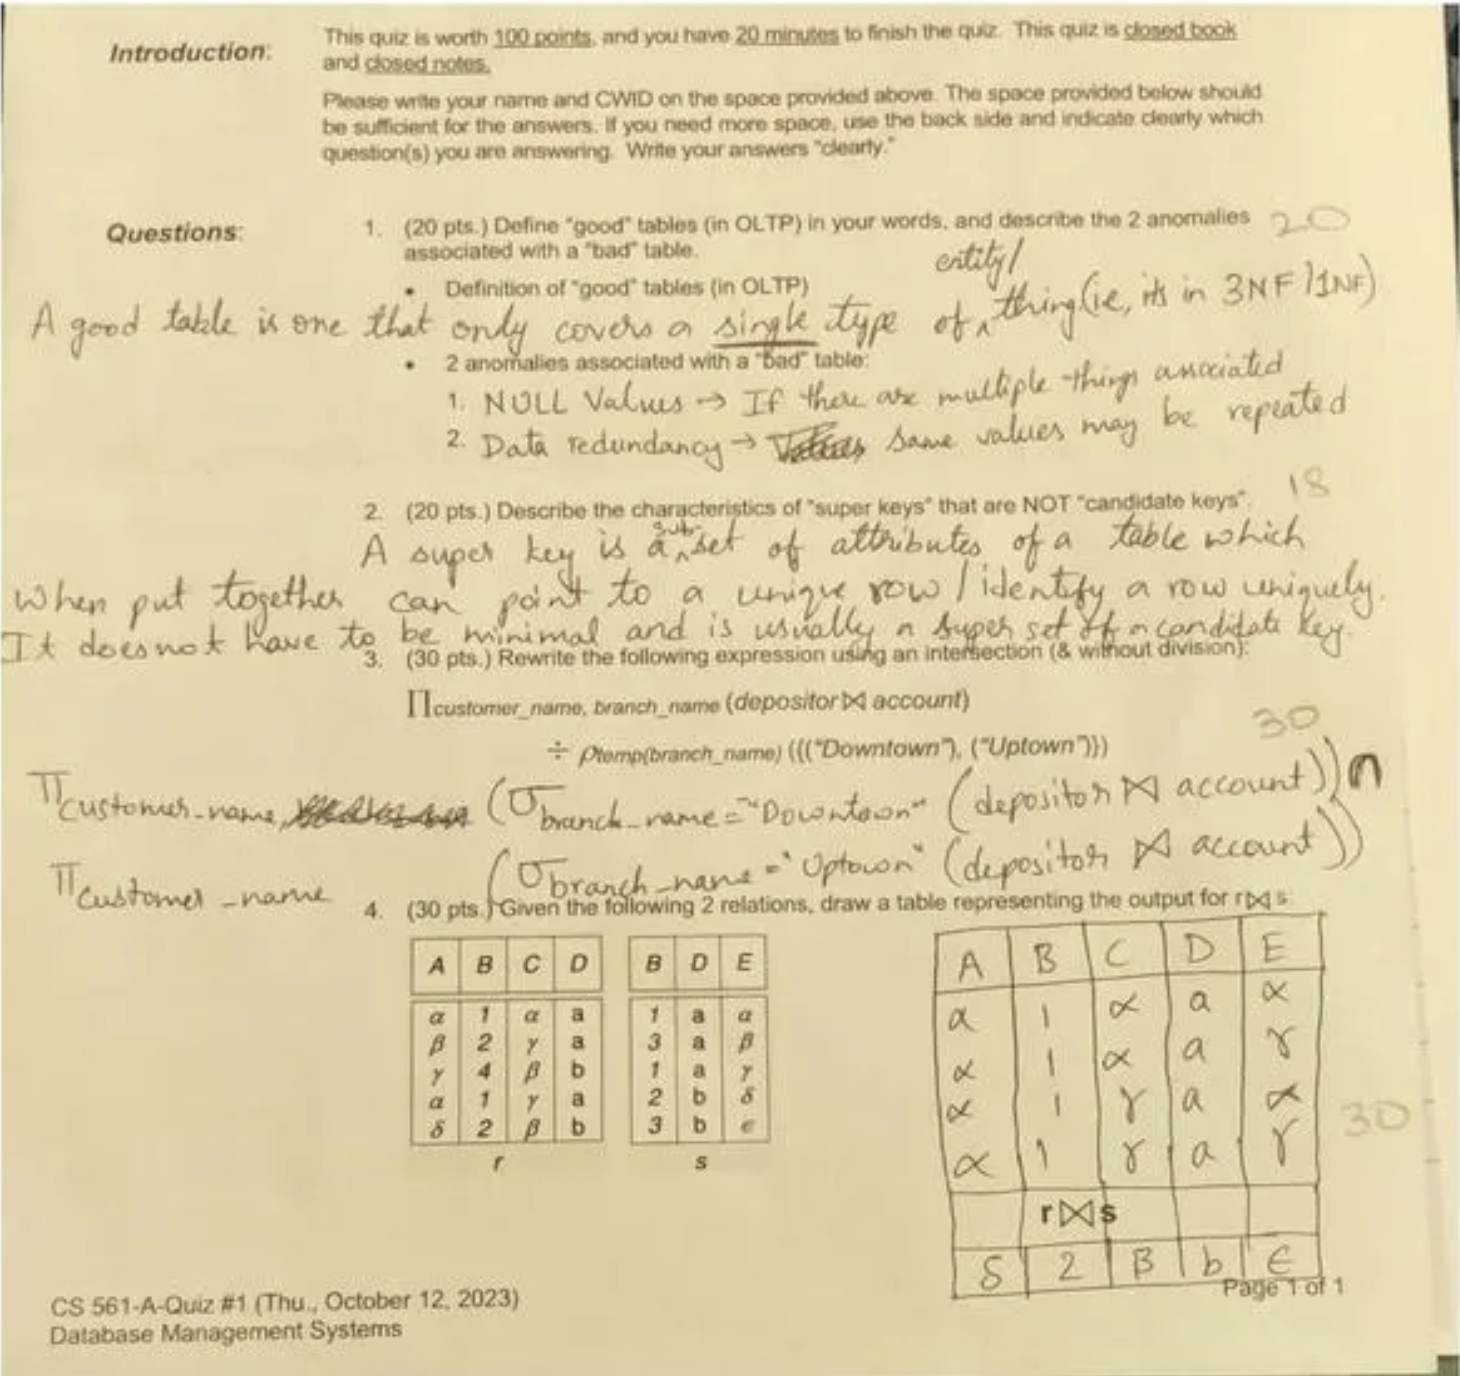 Introduction: This quiz is worth 100 points, and you have 20 minutes to finish the quiz. This quiz is closed book
and closed notes.
Please write your name and CWID on the space provided above. The space provided below should
be sufficient for the answers. If you need more space, use the back side and indicate clearly which
question(s) you are answering. Write your answers "clearly."
Questions: 1. (20 pts.) Define "good" tables (in OLTP) in your words, and describe the 2 anomalies 20
associated with a "bad" table.
• Definition of "good" tables (in OLTP)
entity/
A good table is one that only covers a single type of ^ thing (ie, its in 3NF/1NF)
• 2 anomalies associated with a "bad" table:
1. NULL Values → If there are multiple things associated
2. Data redundancy → same values may be repeated
2. (20 pts.) Describe the characteristics of "super keys" that are NOT "candidate keys". 18
A super key is a ^sub-set of attributes of a table which
when put together can point to a unique row / identify a row uniquely.
It does not have to be minimal and is usually a super set of a candidate key.
3. (30 pts.) Rewrite the following expression using an intersection (& without division):
∏customer_name, branch_name (depositor ⋈ account)
30
÷ ρtemp(branch_name) ({("Downtown"), ("Uptown")})
π customer_name, (σ branch_name = "Downtown" (depositor ⋈ account)) ∩
π customer_name (σ branch_name = "Uptown" (depositor ⋈ account))
4. (30 pts.) Given the following 2 relations, draw a table representing the output for r⋈s:
A B C D
α 1 α a
β 2 γ a
γ 4 β b
α 1 γ a
δ 2 β b
r
B D E
1 a α
3 a β
1 a γ
2 b δ
3 b ϵ
s
A B C D E
α 1 α a α
α 1 α a γ
α 1 γ a α
α 1 γ a γ
r⋈s
δ 2 β b ϵ
30
CS 561-A-Quiz #1 (Thu., October 12, 2023)
Database Management Systems
Page 1 of 1